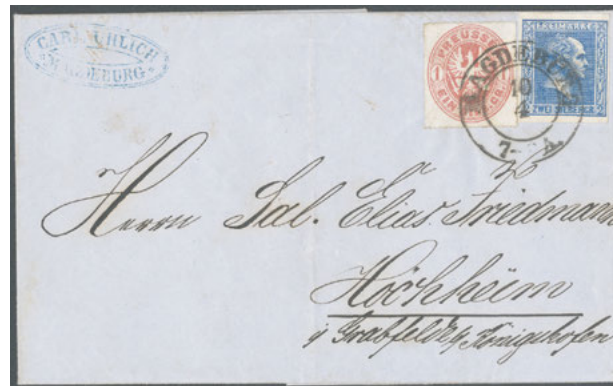 CARL UHLICH
MAGDEBURG
PREUSSEN
1
EIN
FREIMARKE
ZWEI
MAGDEBURG
10
4
7-
Herrn Sal. Elias Friedmann
Höchheim
i Grabfelde Königshofen